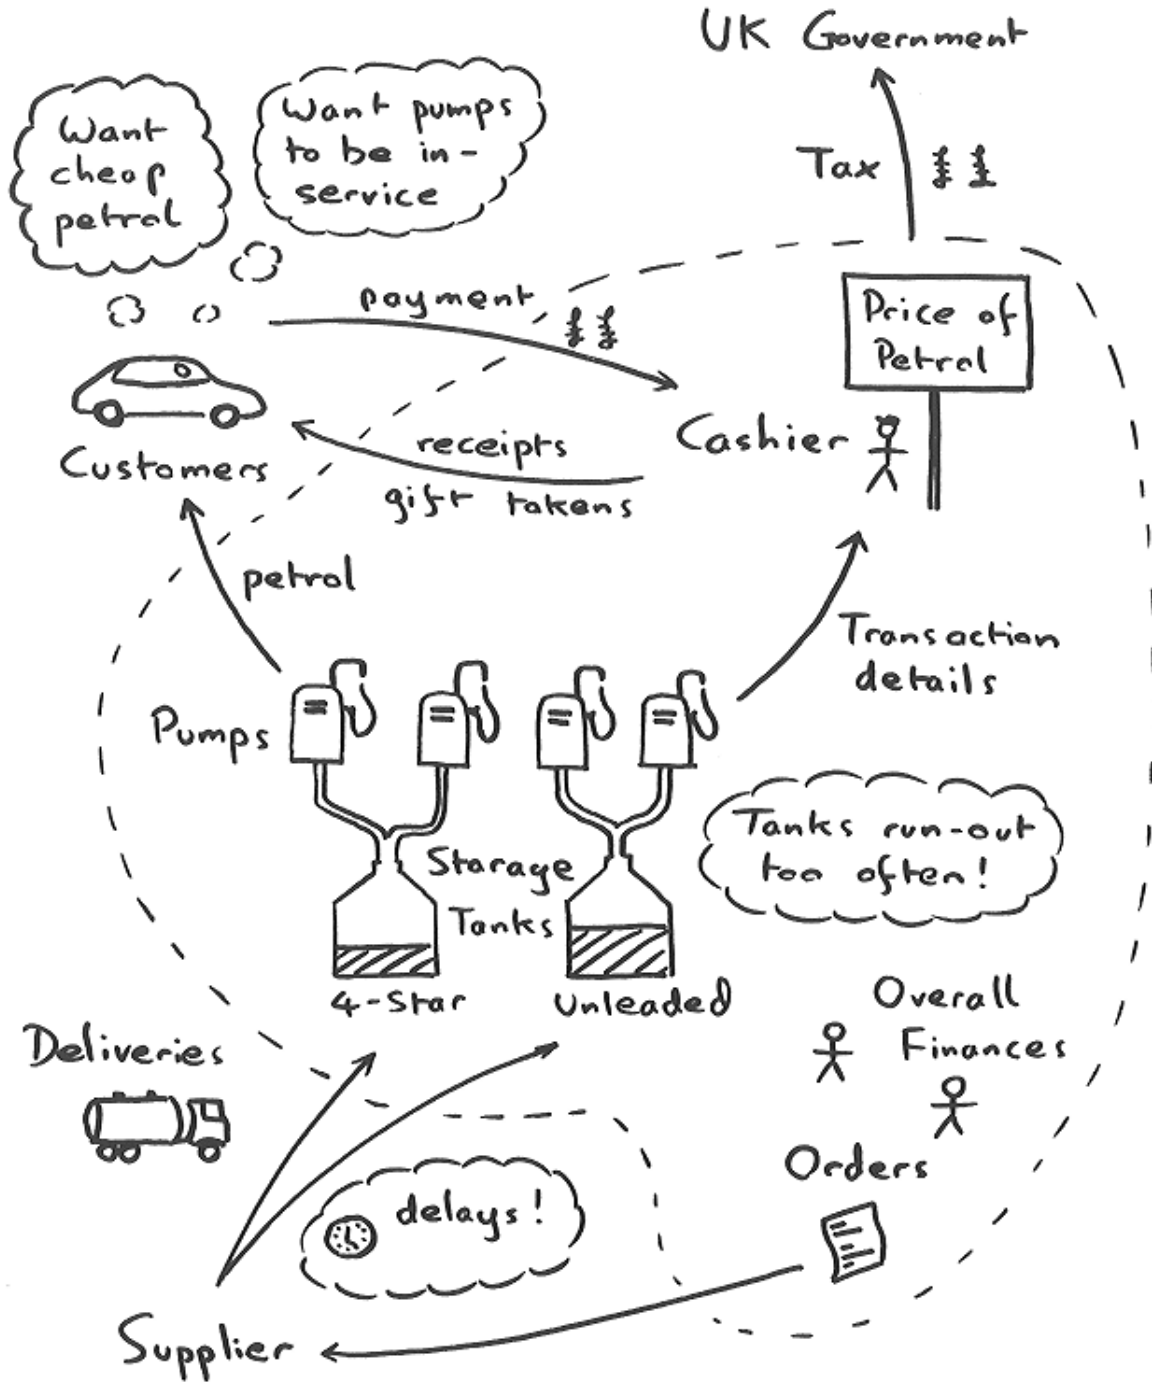 UK Government
Want
cheap
petrol
Want pumps
to be in-
service
Tax ££
payment
££
Price of
Petrol
Cashier
Customers
receipts
gift tokens
petrol
Transaction
details
Pumps
Tanks run-out
too often!
Storage
Tanks
4-Star
Unleaded
Overall
Finances
Deliveries
Orders
delays!
Supplier